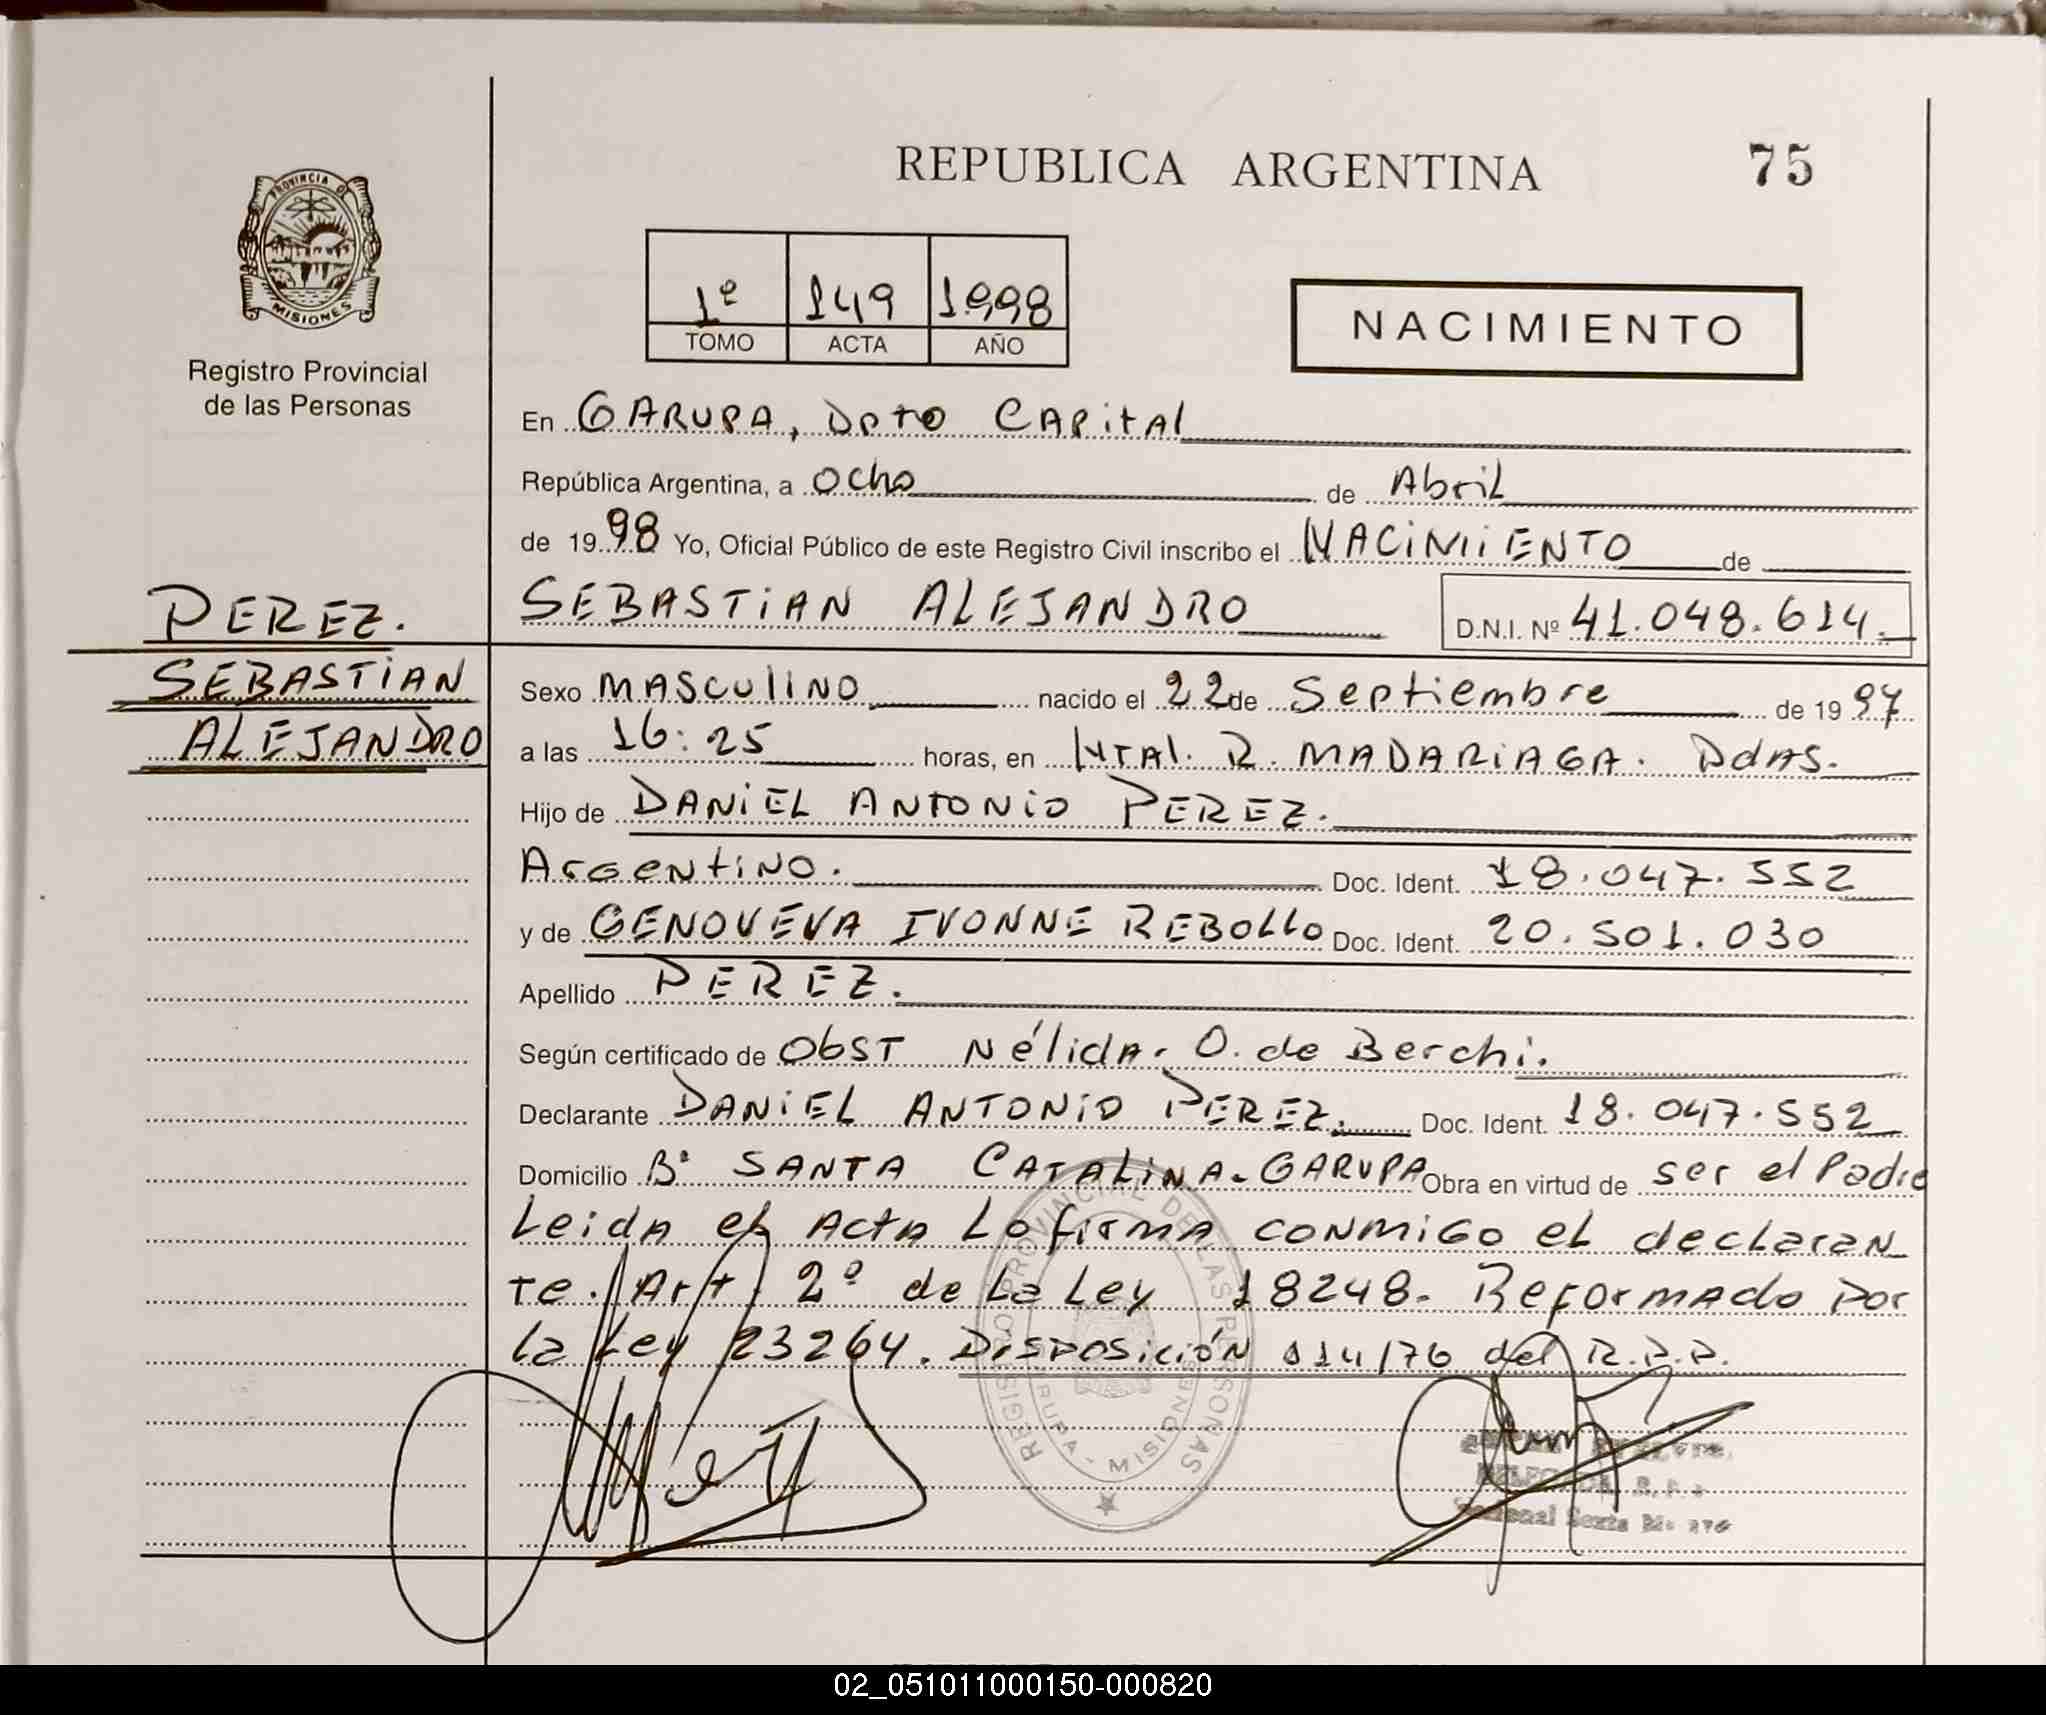 REPUBLICA ARGENTINA
75
PROVINCIA DE
MISIONES
Registro Provincial
de las Personas
1º 149 1998
TOMO ACTA AÑO
NACIMIENTO
En GARUPA, Dpto CAPitAl
República Argentina, a ocho de Abril
de 1998 Yo, Oficial Público de este Registro Civil inscribo el NACiMiENTO de
PEREZ.
SEBASTIAN
ALEJANDRO
SEBASTIAN ALEJANDRO D.N.I. Nº 41.048.614.
Sexo MASCULINO nacido el 22 de Septiembre de 1997
a las 16:25 horas, en R. MADARIAGA. PdAS.
Hijo de DANIEL ANTONIO PEREZ.
ArgentiNO. Doc. Ident. 18.047.552
y de GENOVEVA IVONNE REBOLLO Doc. Ident. 20.501.030
Apellido PEREZ.
Según certificado de ObST Nélida. O. de Berchi.
Declarante DANIEL ANTONIO PEREZ. Doc. Ident. 18.047.552
Domicilio Bº SANTA CATALINA-GARUPA Obra en virtud de ser el Padre
Leida el Acta Lo firma conmigo el declaran
te. Art 2º de La Ley 18248. Reformado por
la Ley 23264. Disposición 114/76 del R.P.P.
REGISTRO PROVINCIAL DE LAS PERSONAS
GARUPA - MISIONES
02_051011000150-000820